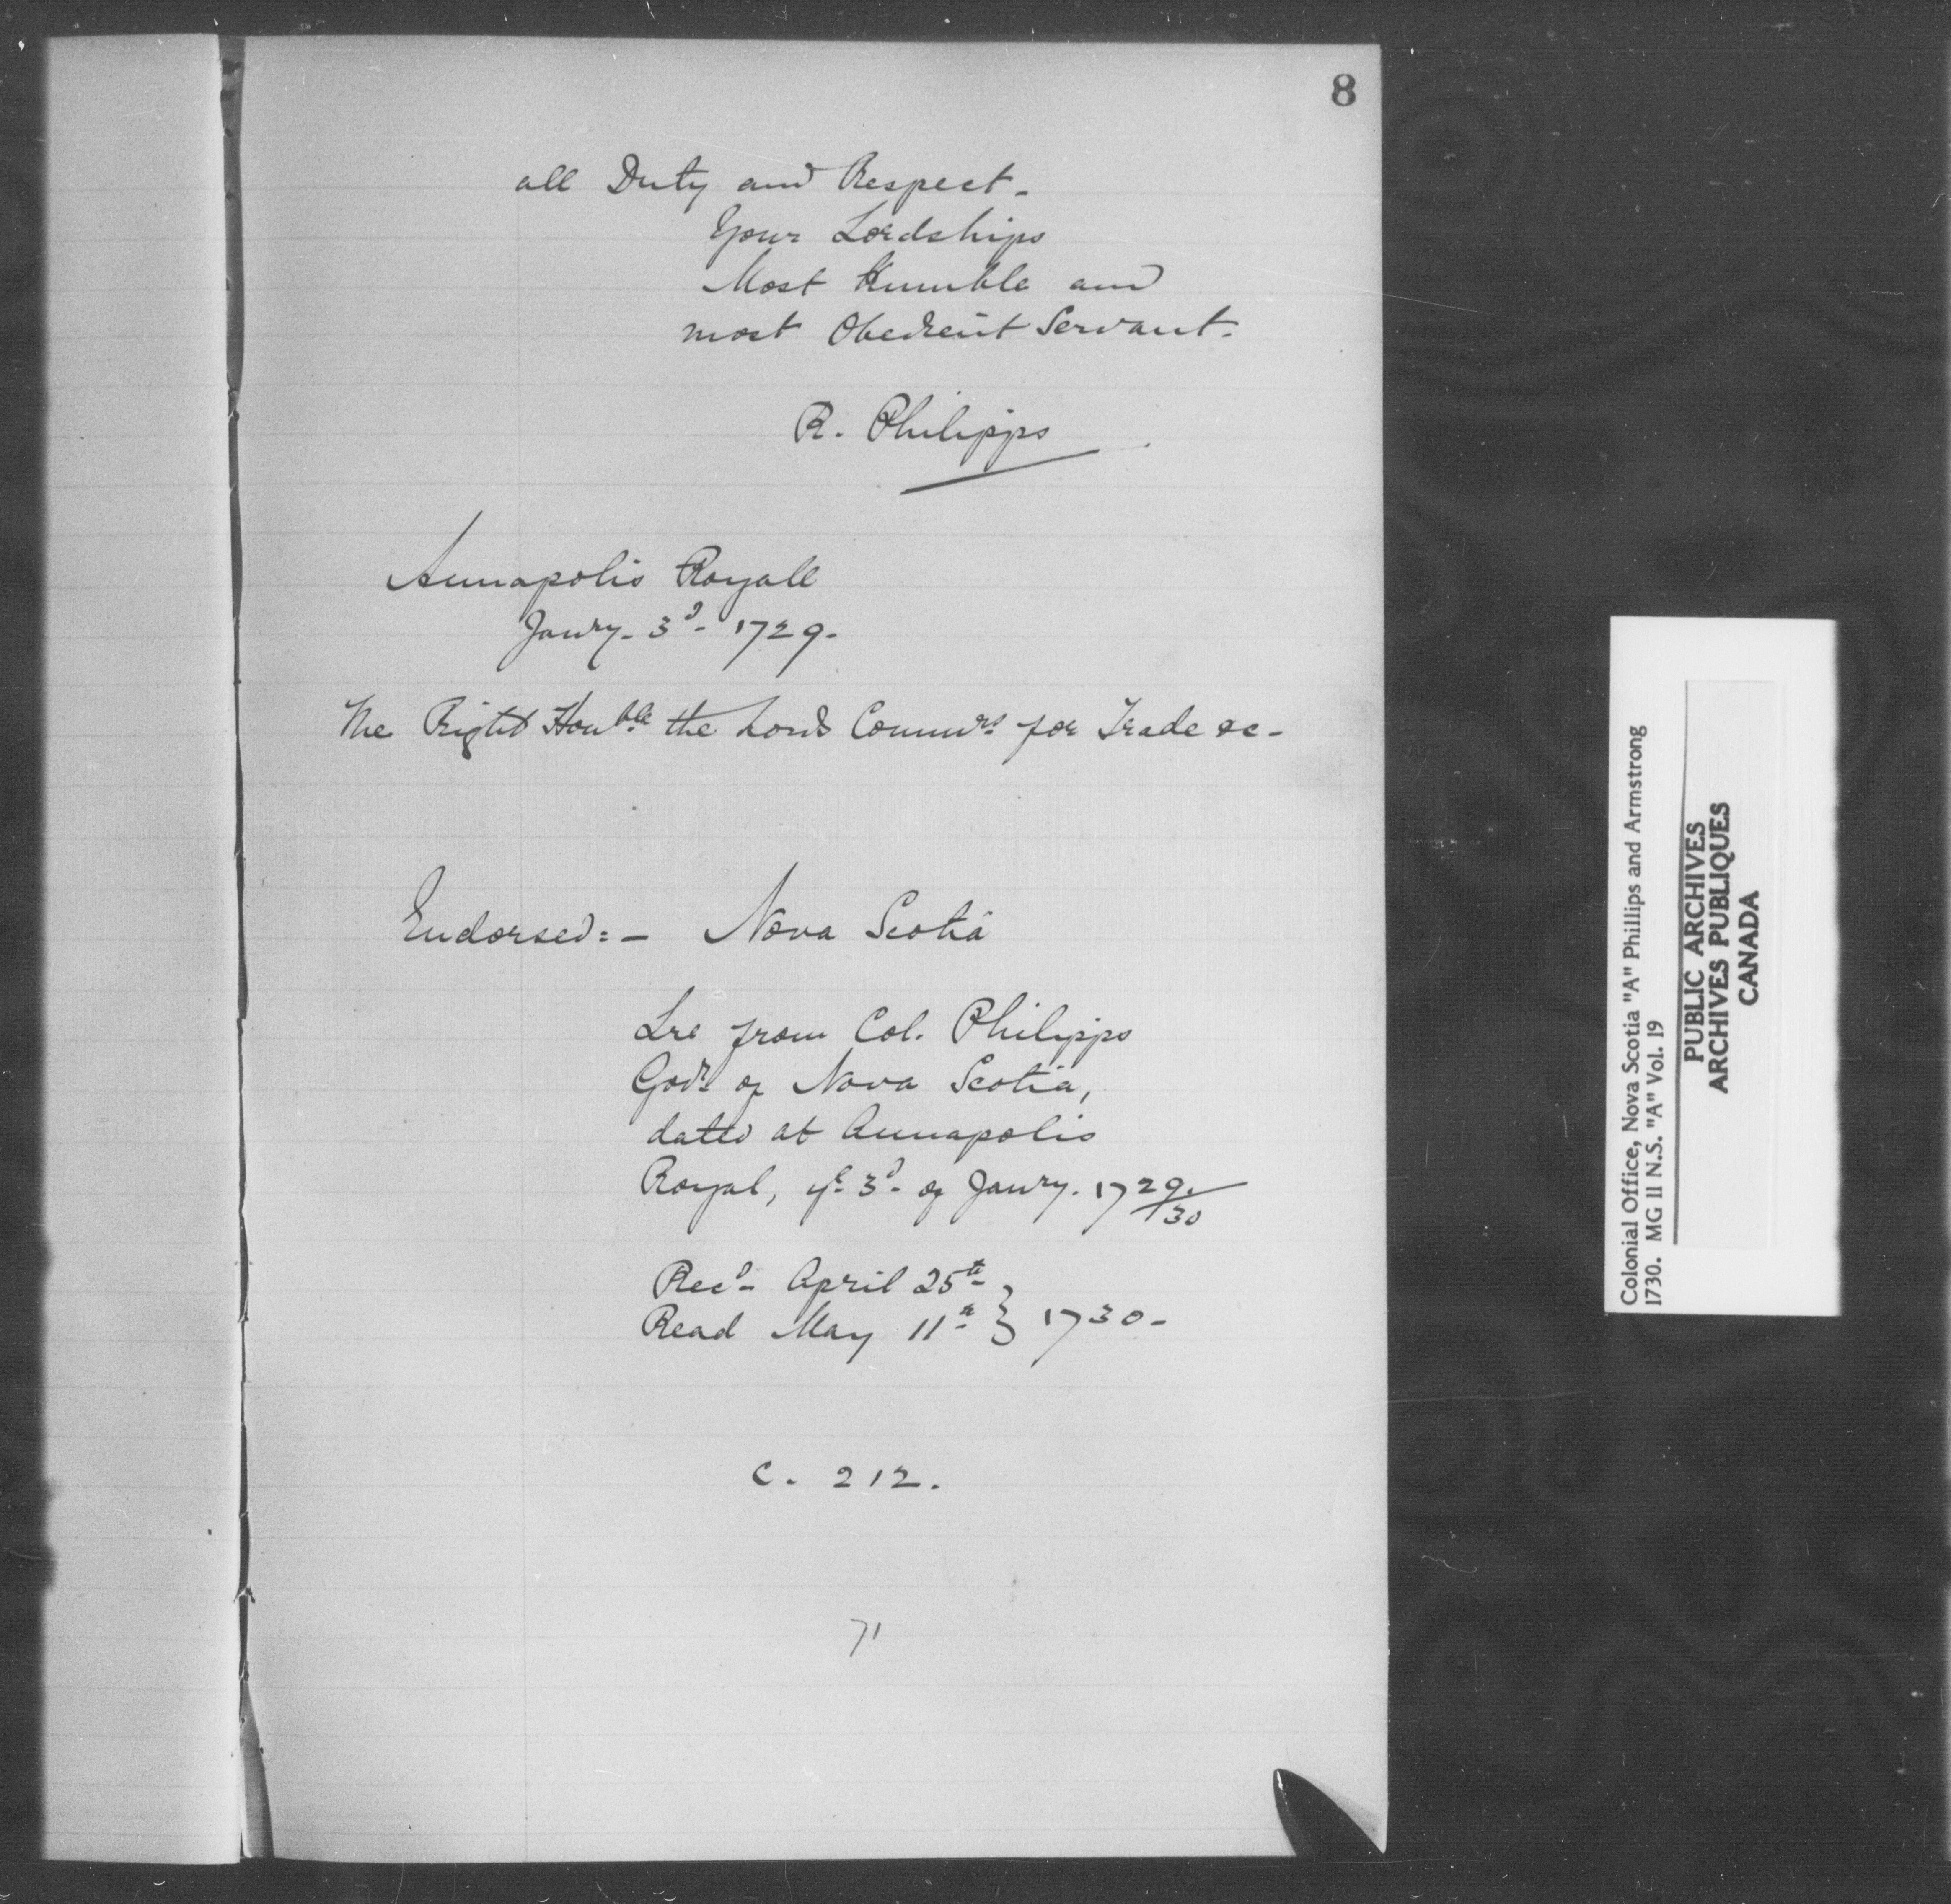 8
all Duty and Respect.
Your Lordships
Most Humble and
most Obedient Servant.
R. Philipps
Annapolis Royall
Janry. 3d. 1729.
The Right Honble the Lords Commrs for Trade &c.
Endorsed:- Nova Scotia
Lre from Col. Philipps
Govr of Nova Scotia,
dated at Annapolis
Royal, ye 3d of Janry. 1729/30
Recd April 25th
Read May 11th } 1730-
C. 212.
71
Colonial Office, Nova Scotia "A" Phillips and Armstrong
1730. MG 11 N.S. "A" Vol. 19
PUBLIC ARCHIVES
ARCHIVES PUBLIQUES
CANADA